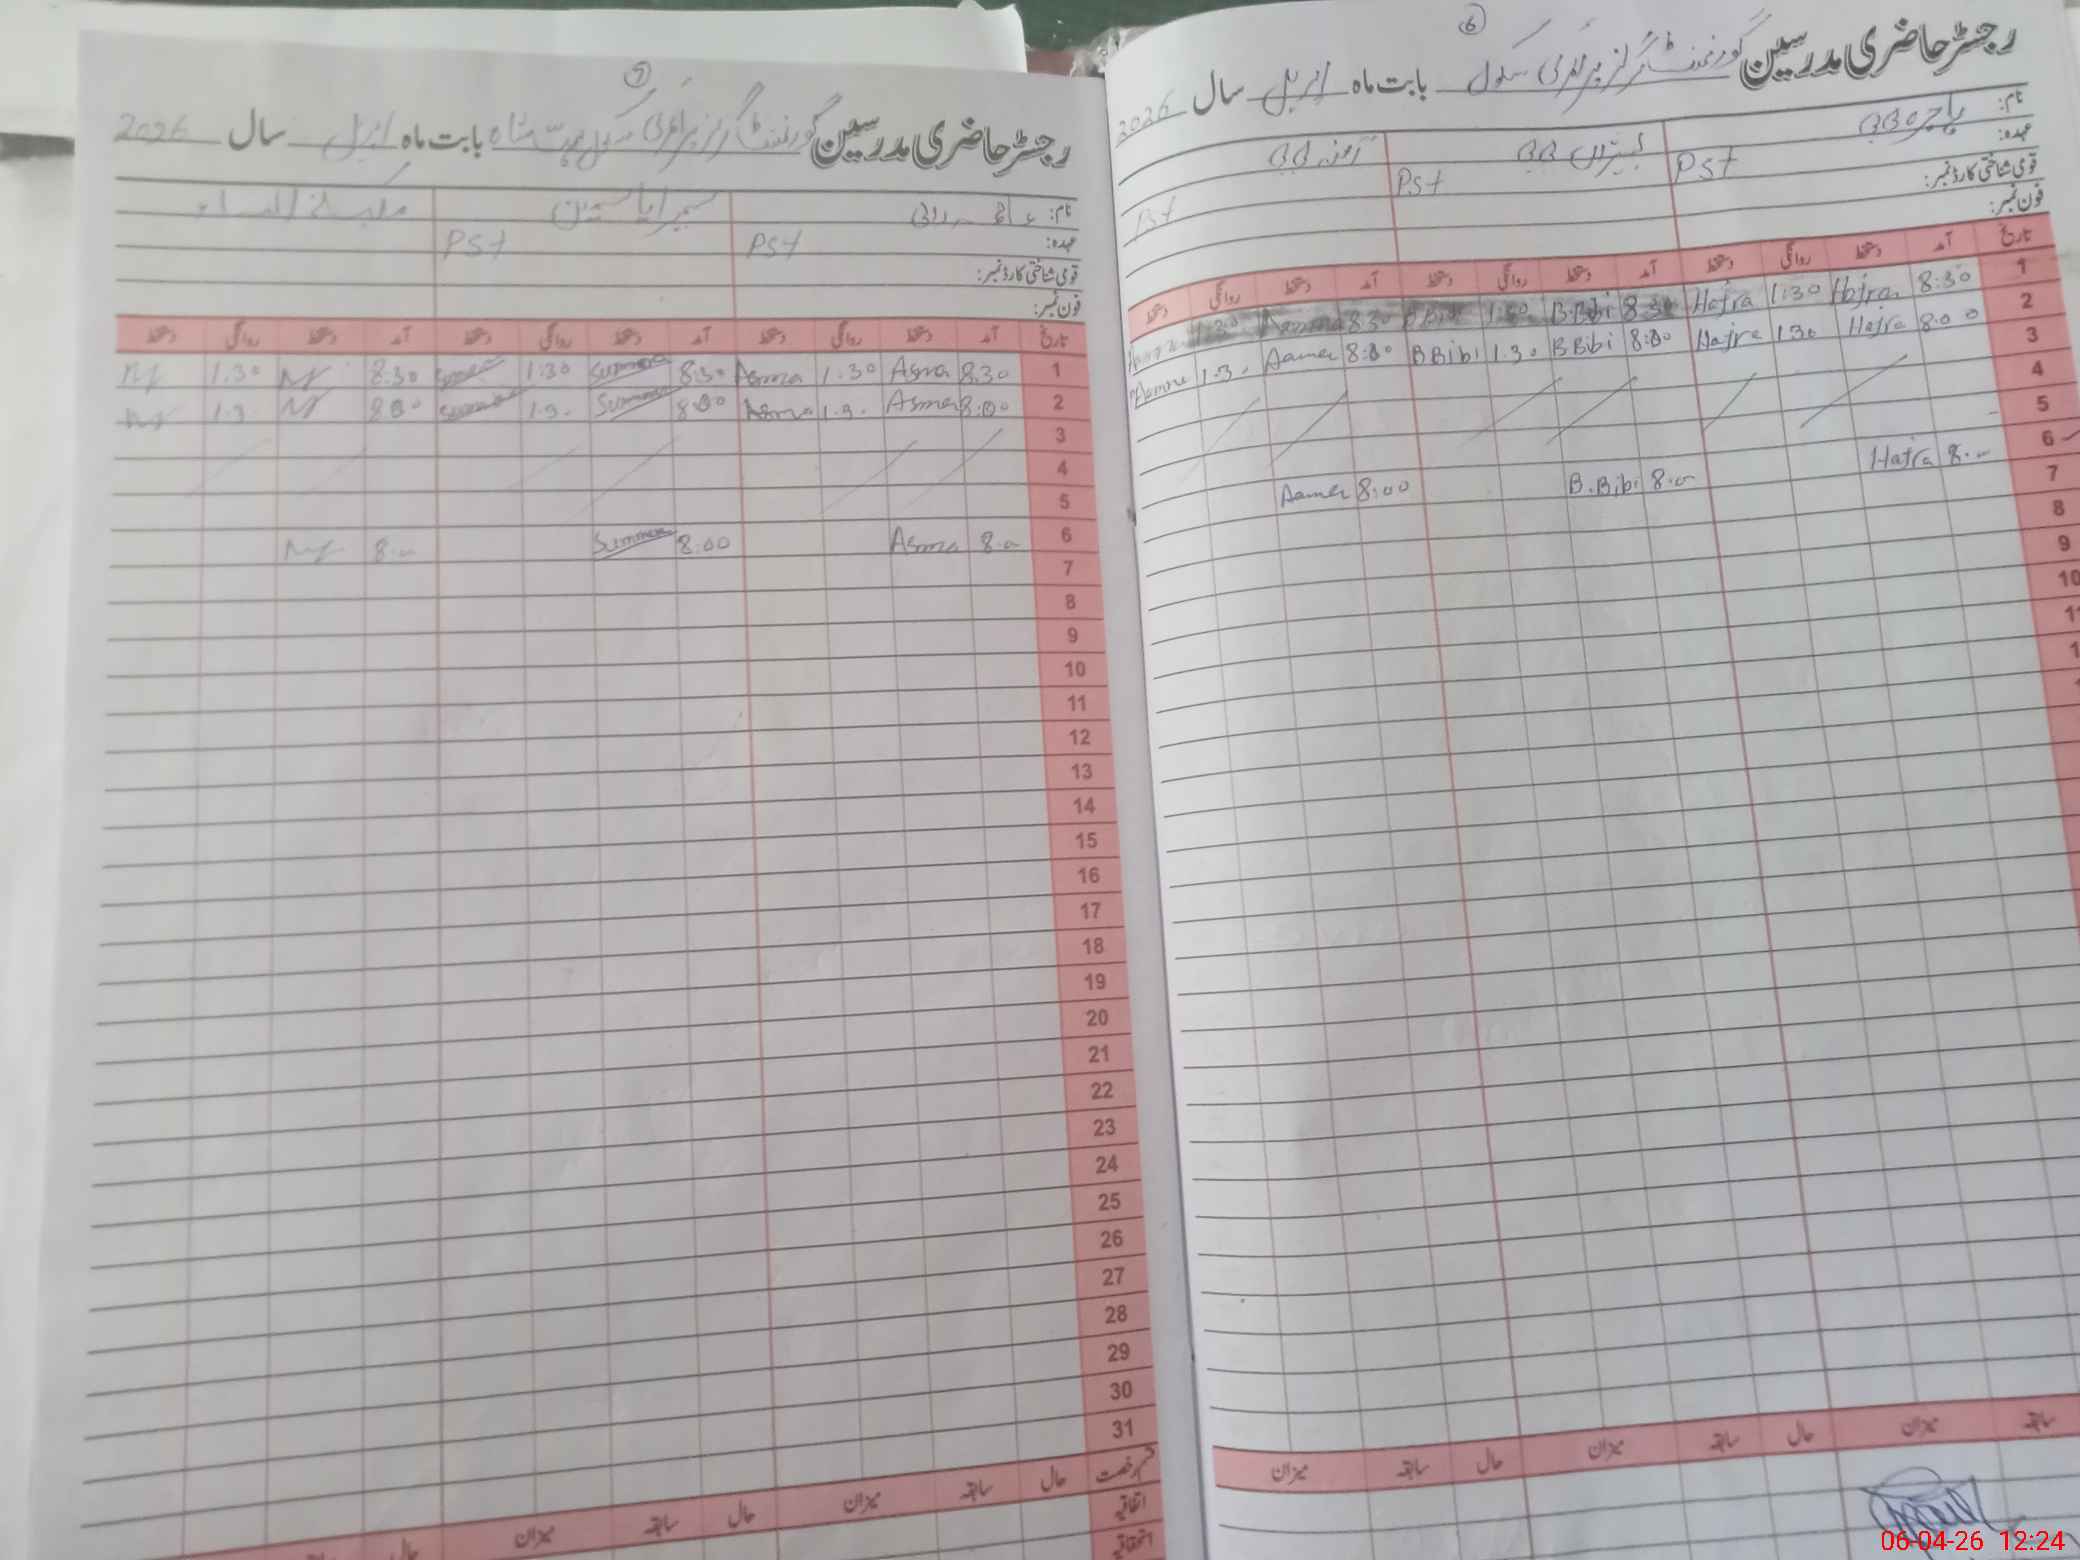 رجسٹر حاضری مدرسین گورنمنٹ گرلز پرائمری سکول بابت ماہ اپریل سال 2026
7
نام: سمیرا یاسمین
عہدہ: PST PST
قومی شناختی کارڈ نمبر:
فون نمبر:
تاریخ آمد دستخط روانگی دستخط آمد دستخط روانگی دستخط آمد دستخط روانگی دستخط
1 8.30 Asma 1.30 Asma 8.30 Summera 1.30 8.30 1.30
2 8:00 Asma 1.30 Asma 8:00 Summera 1.30 Summera 8:00 1.30
3
4
5
6 8.00 Asma 8:00 Summera 8.00
7
8
9
10
11
12
13
14
15
16
17
18
19
20
21
22
23
24
25
26
27
28
29
30
31
قسم رخصت حال سابقہ میزان حال سابقہ میزان حال سابقہ
اتفاقیہ
استحقاقیہ
6
رجسٹر حاضری مدرسین گورنمنٹ گرلز پرائمری سکول بابت ماہ اپریل سال 2026
نام: ہاجرہ BB BB آمنہ BB
عہدہ: PST PST PST
قومی شناختی کارڈ نمبر:
فون نمبر:
تاریخ آمد دستخط روانگی دستخط آمد دستخط روانگی دستخط آمد دستخط روانگی دستخط
1 8:30 Hajra 1:30 Hajra 8.30 B.Bibi 1:30 B Bibi 8.30 1.30
2 8:00 Hajra 1.30 Hajra 8:00 B Bibi 1.30 B Bibi 8:00 1.30
3
4
5
6 8.00 Hajra 8.00 B.Bibi 8:00
7
8
9
10
سابقہ میزان حال سابقہ میزان حال سابقہ میزان
06-04-26 12:24